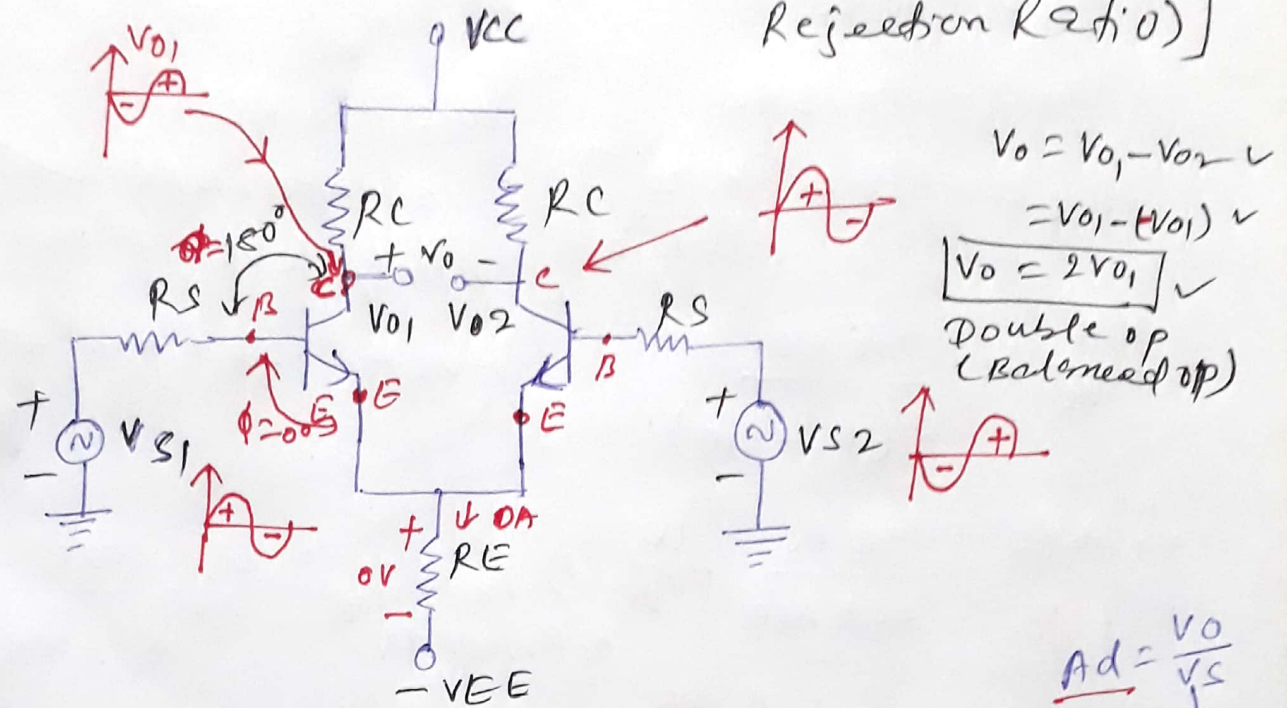 Rejection Ratio)]
VO1
VCC
- +
RC
RC
+
-
VO = VO1 - VO2 ✓
= VO1 - (-VO1) ✓
VO = 2VO1 ✓
Double op
(Balanced op)
ϕ=180°
+ VO -
C
RS
B
VO1
VO2
RS
B
E
E
+
VS1
-
+
VS2
-
- +
+
-
+ ↓ OA
OV
RE
-
-VEE
Ad = VO
VS